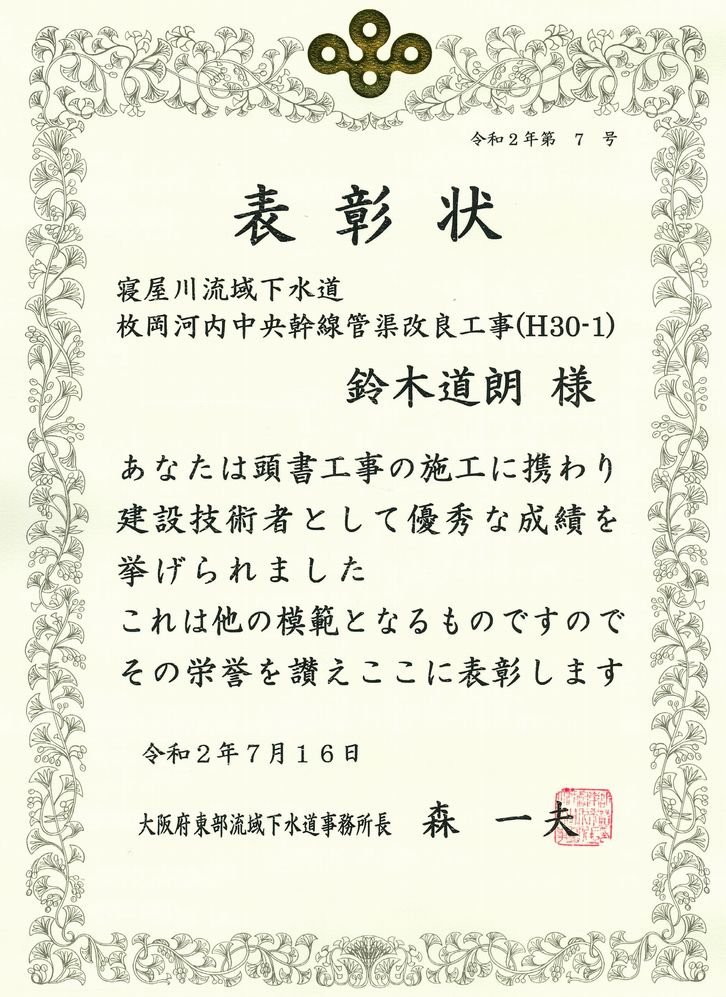 令和２年第　７　号
表彰状
寝屋川流域下水道
枚岡河内中央幹線管渠改良工事(H30-1)
鈴木道朗 様
あなたは頭書工事の施工に携わり
建設技術者として優秀な成績を
挙げられました
これは他の模範となるものですので
その栄誉を讃えここに表彰します
令和２年７月１６日
大阪府東部流域下水道事務所長　森　一夫